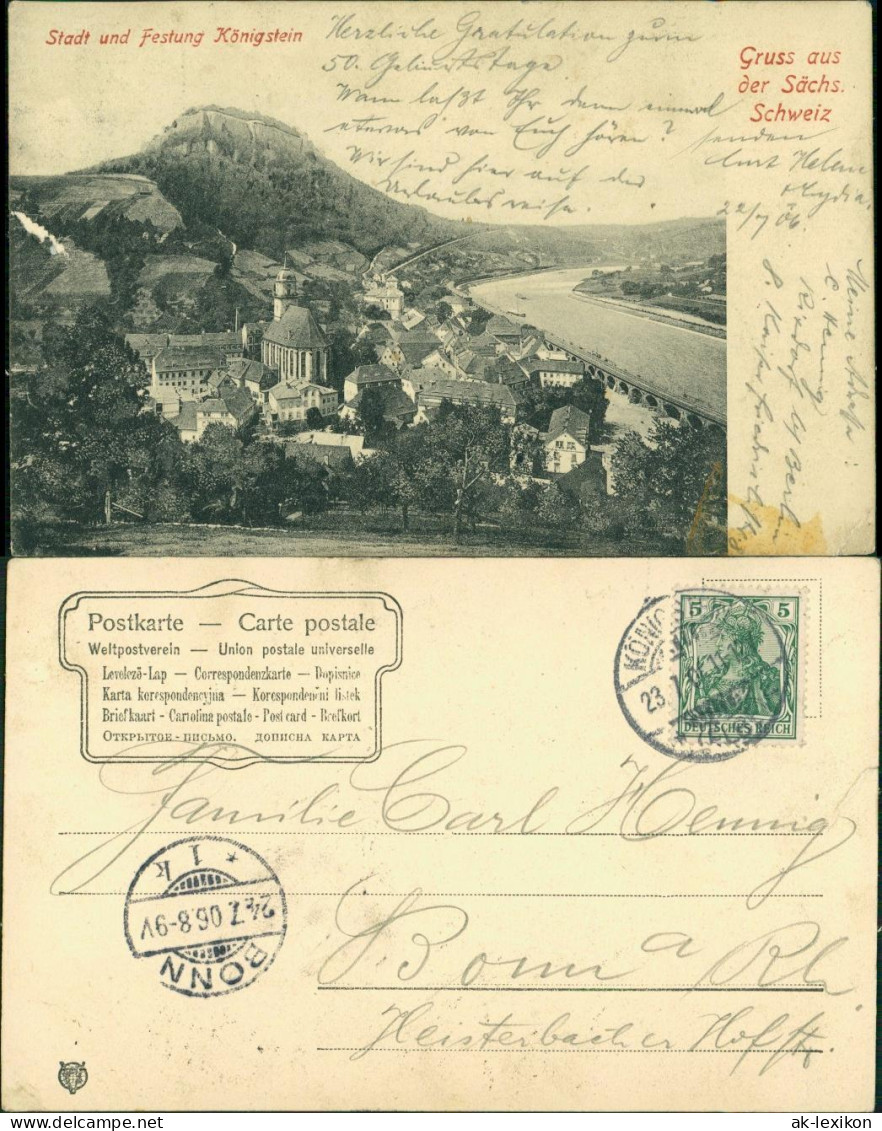 Stadt und Festung Königstein
Gruss aus
der Sächs.
Schweiz
Herzliche Gratulation zum
50. Geburtstage
Wann laßt Ihr denn einmal
etwas von Euch hören?
Wir sind hier auf der
Urlaubsreise.
senden
Curt Helene
22/7 06.
Meine Adresse:
C. Hennig
Rixdorf b/ Berlin
Postkarte — Carte postale
Weltpostverein — Union postale universelle
Levelező-Lap — Correspondenzkarte — Dopisnice
Karta korespondencyjna — Korespondenční lístek
Briefkaart - Cartolina postale - Post card - Brefkort
ОТКРЫТОЕ - ПИСЬМО. ДОПИСНА КАРТА
5 5
DEUTSCHES REICH
KÖNIG
23.7
Familie Carl Hennig
Bonn a Rh
Heisterbacher Hofstr.
BONN
24.7.06.8-9V
* 1 k
ak-lexikon